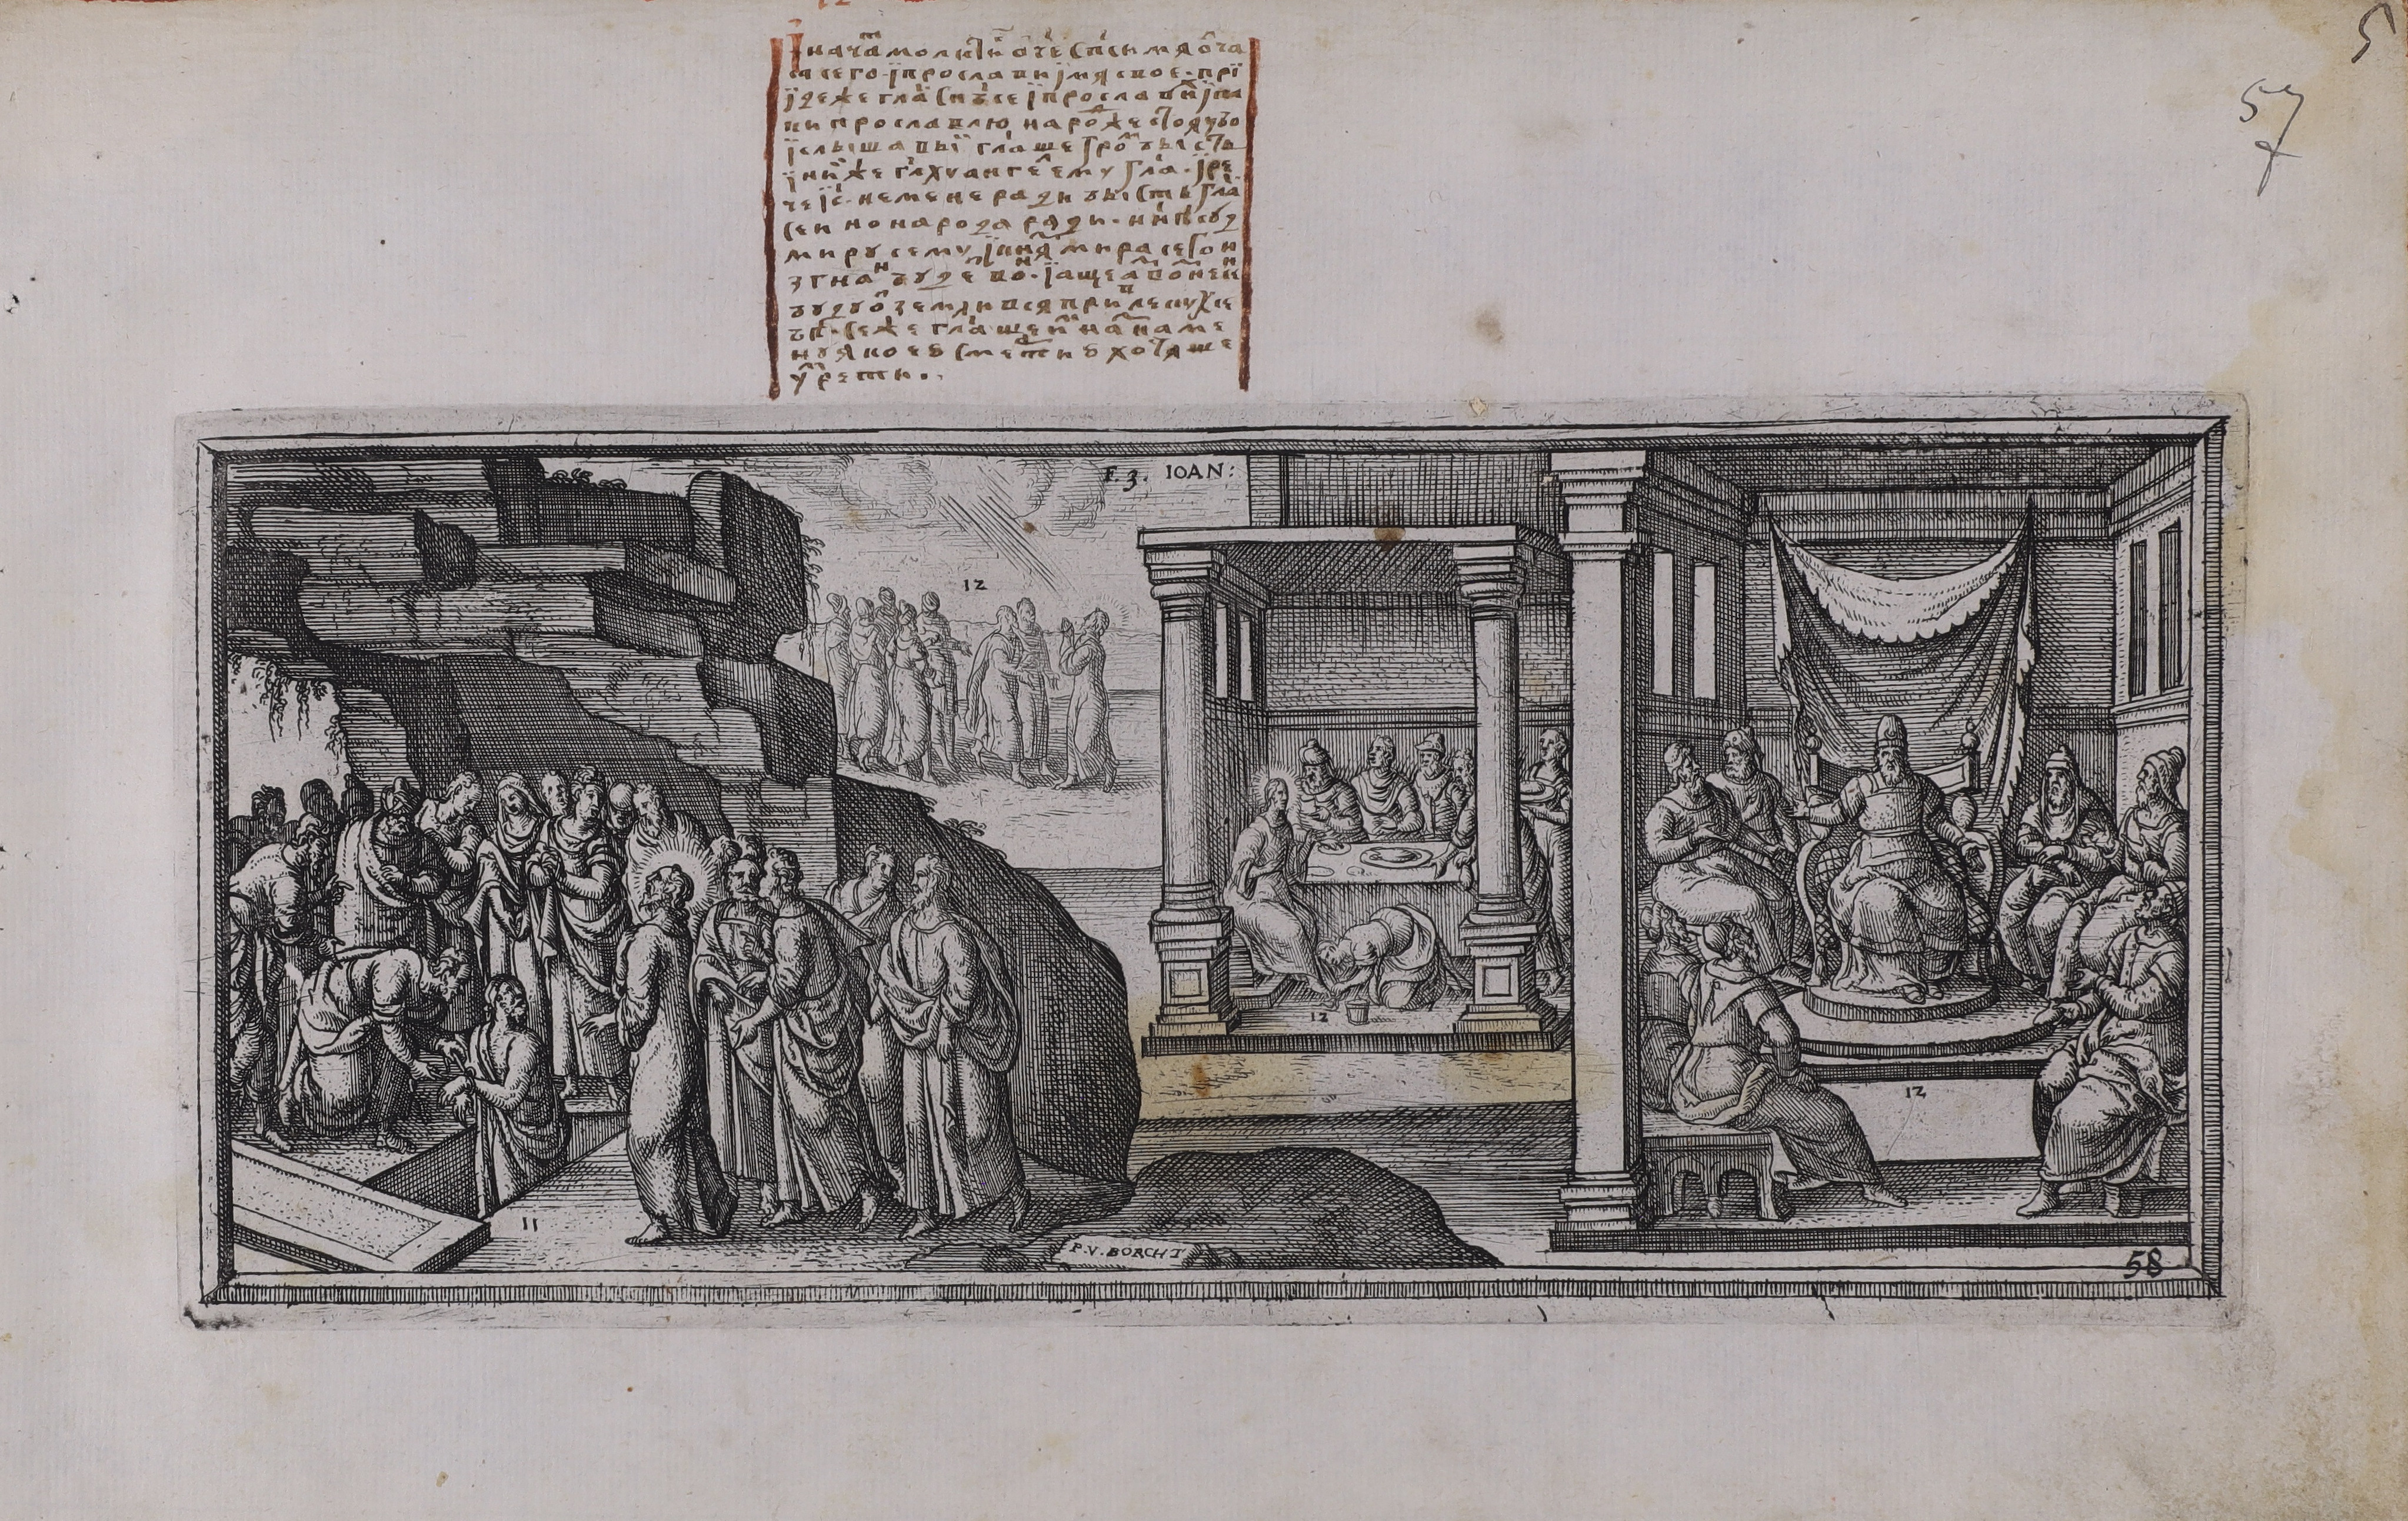 5
57
12
Ї нача молити ѻче спси мя ѻ ча
са сего · ї прослави їмя свое · прї
їдеже гла с нбсе ї прослави ї па
ки прославлю наро же стоя
ї слышавыї глаше гро бысть
ї ни же глху анге ему гла · ї ре
че їс · не мене ради бысть гла
сеи но народа ради · ннѣ су
миру сему ї кня мира сего и
згна буде во · ї аще а возне
буду ѿ земли вся привлеку к се
бѣ · се же глаше назнаме
нуя коею смертию хотяше
умрети ·
F. 3. IOAN:
12
12
12
11
P. V. BORCHT
58